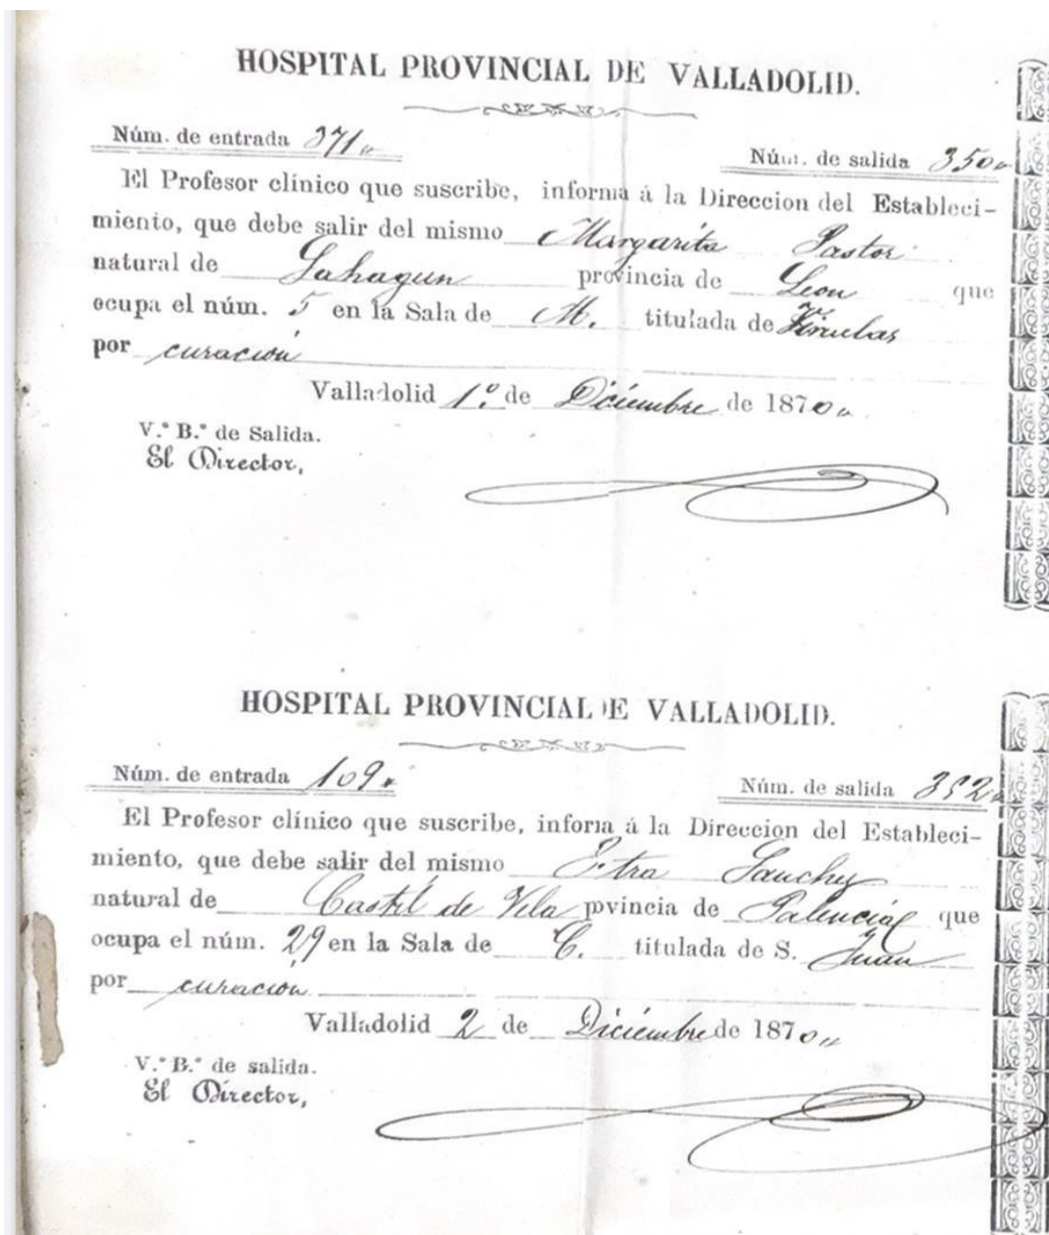 HOSPITAL PROVINCIAL DE VALLADOLID.
Núm. de entrada 371 Núm. de salida 350
El Profesor clínico que suscribe, informa á la Direccion del Estableci-
miento, que debe salir del mismo Margarita Pastor
natural de Sahagun provincia de Leon que
ocupa el núm. 5 en la Sala de M. titulada de
por curación
Valladolid 1.º de Diciembre de 1870
V.º B.º de Salida.
El Director,
HOSPITAL PROVINCIAL DE VALLADOLID.
Núm. de entrada 109 Núm. de salida 352
El Profesor clínico que suscribe, informa á la Direccion del Estableci-
miento, que debe salir del mismo Sanchez
natural de Castil de Vela pvincia de Palencia que
ocupa el núm. 29 en la Sala de C. titulada de S. Juan
por curacion
Valladolid 2 de Diciembre de 1870
V.º B.º de salida.
El Director,